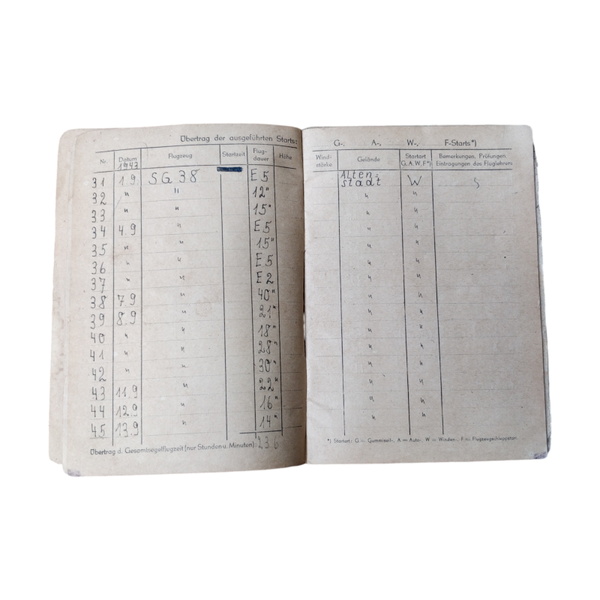 Übertrag der ausgeführten Starts:
Nr. Datum 1943 Flugzeug Startzeit Flugdauer Höhe
31 1.9. S.G.38 E5
32 " " 12"
33 " " 15"
34 4.9 " E5
35 " " 15"
36 " " E5
37 " " E2
38 7.9 " 40"
39 8.9 " 21"
40 " " 18"
41 " " 28"
42 " " 30"
43 11.9 " 22"
44 12.9 " 16"
45 13.9 " 14"
Übertrag d. Gesamtsegelflugzeit (nur Stunden u. Minuten)
G-, A-, W-, F-Starts*)
Windstärke Gelände Startart G, A, W, F*) Bemerkungen, Prüfungen Eintragungen des Fluglehrers
Altenstadt W
" "
" "
" "
" "
" "
" "
" "
" "
" "
" "
" "
" "
" "
" "
*) Startart: G = Gummiseil-, A = Auto-, W = Winden-, F = Flugzeugschleppstart.